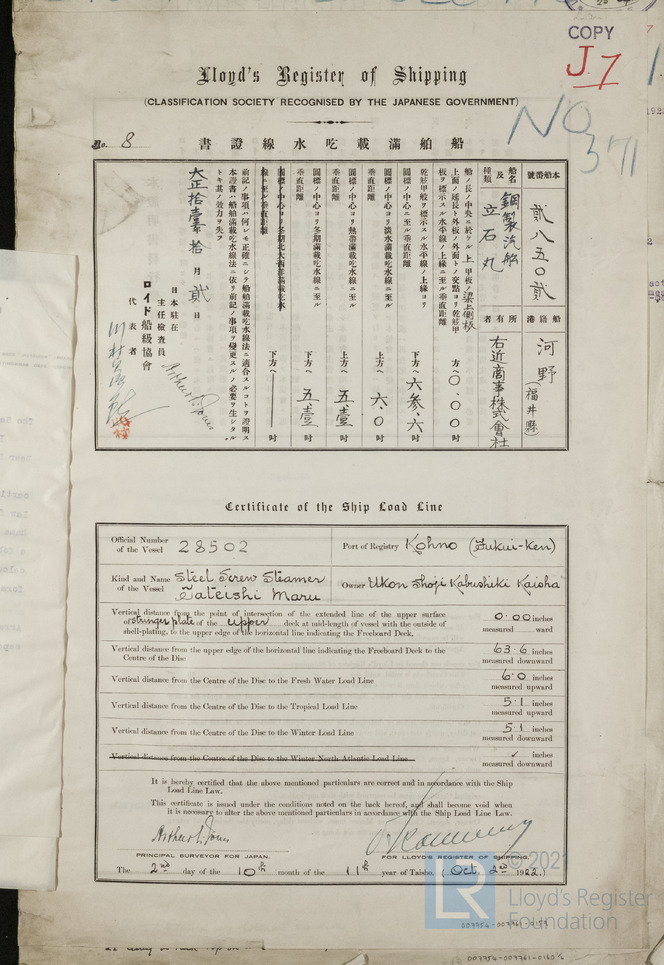 COPY
J.7
No 371
Lloyd's Register of Shipping
(CLASSIFICATION SOCIETY RECOGNISED BY THE JAPANESE GOVERNMENT)
No. 8
書證線水吃載滿舶船
號番船本
貳八五〇貳
港籍船
河野(福井縣)
船名及種類
鋼製汽船
立石丸
者有所
右近商事株式會社
船ノ長ノ中央ニ於ケル上甲板ノ梁上側板
上面ノ延長ト外板ノ外面トノ交點ヨリ乾舷甲
板ヲ標示スル水平線ノ上緣ニ至ル垂直距離
方へ〇.〇〇吋
乾舷甲板ヲ標示スル水平線ノ上緣ヨリ
圓標ノ中心ニ至ル垂直距離
下方へ六參.六吋
圓標ノ中心ヨリ淡水滿載吃水線ニ至ル
垂直距離
上方へ六.〇吋
圓標ノ中心ヨリ熱帶滿載吃水線ニ至ル
垂直距離
上方へ五.壹吋
圓標ノ中心ヨリ冬期滿載吃水線ニ至ル
垂直距離
下方へ五.壹吋
圓標ノ中心ヨリ冬期北大西洋滿載吃水
線ニ至ル垂直距離
下方へ吋
前記ノ事項ハ何レモ正確ニシテ船舶滿載吃水線法ニ適合スルコトヲ證明ス
本證書ハ船舶滿載吃水線法ニ依リ前記ノ事項ヲ變更スルノ必要ヲ生シタル
トキ其ノ效力ヲ失フ
大正拾壹年拾月貳日
日本駐在
主任檢查員
Arthur L. Jones
ロイド船級協會
代表者
Certificate of the Ship Load Line
Official Number of the Vessel 28502
Port of Registry Kohno (Fukui-Ken)
Kind and Name of the Vessel Steel Screw Steamer
Tateishi Maru
Owner Ukon Shoji Kabushiki Kaisha
Vertical distance from the point of intersection of the extended line of the upper surface
of stringer plate of the upper deck at mid-length of vessel with the outside of
shell-plating, to the upper edge of the horizontal line indicating the Freeboard Deck.
0.00 inches
measured ward
Vertical distance from the upper edge of the horizontal line indicating the Freeboard Deck to the
Centre of the Disc
63.6 inches
measured downward
Vertical distance from the Centre of the Disc to the Fresh Water Load Line
6.0 inches
measured upward
Vertical distance from the Centre of the Disc to the Tropical Load Line
5.1 inches
measured upward
Vertical distance from the Centre of the Disc to the Winter Load Line
5.1 inches
measured downward
Vertical distance from the Centre of the Disc to the Winter North Atlantic Load Line
inches
measured downward
It is hereby certified that the above mentioned particulars are correct and in accordance with the Ship
Load Line Law.
This certificate is issued under the conditions noted on the back hereof, and shall become void when
it is necessary to alter the above mentioned particulars in accordance with the Ship Load Line Law.
Arthur L. Jones
PRINCIPAL SURVEYOR FOR JAPAN.
FOR LLOYD'S REGISTER OF SHIPPING.
The 2nd day of the 10th month of the 11th year of Taisho. (Oct 2nd 1922.)
© 2021
Lloyd's Register
Foundation
LR
007756-007961-0159
007756-007961-0160